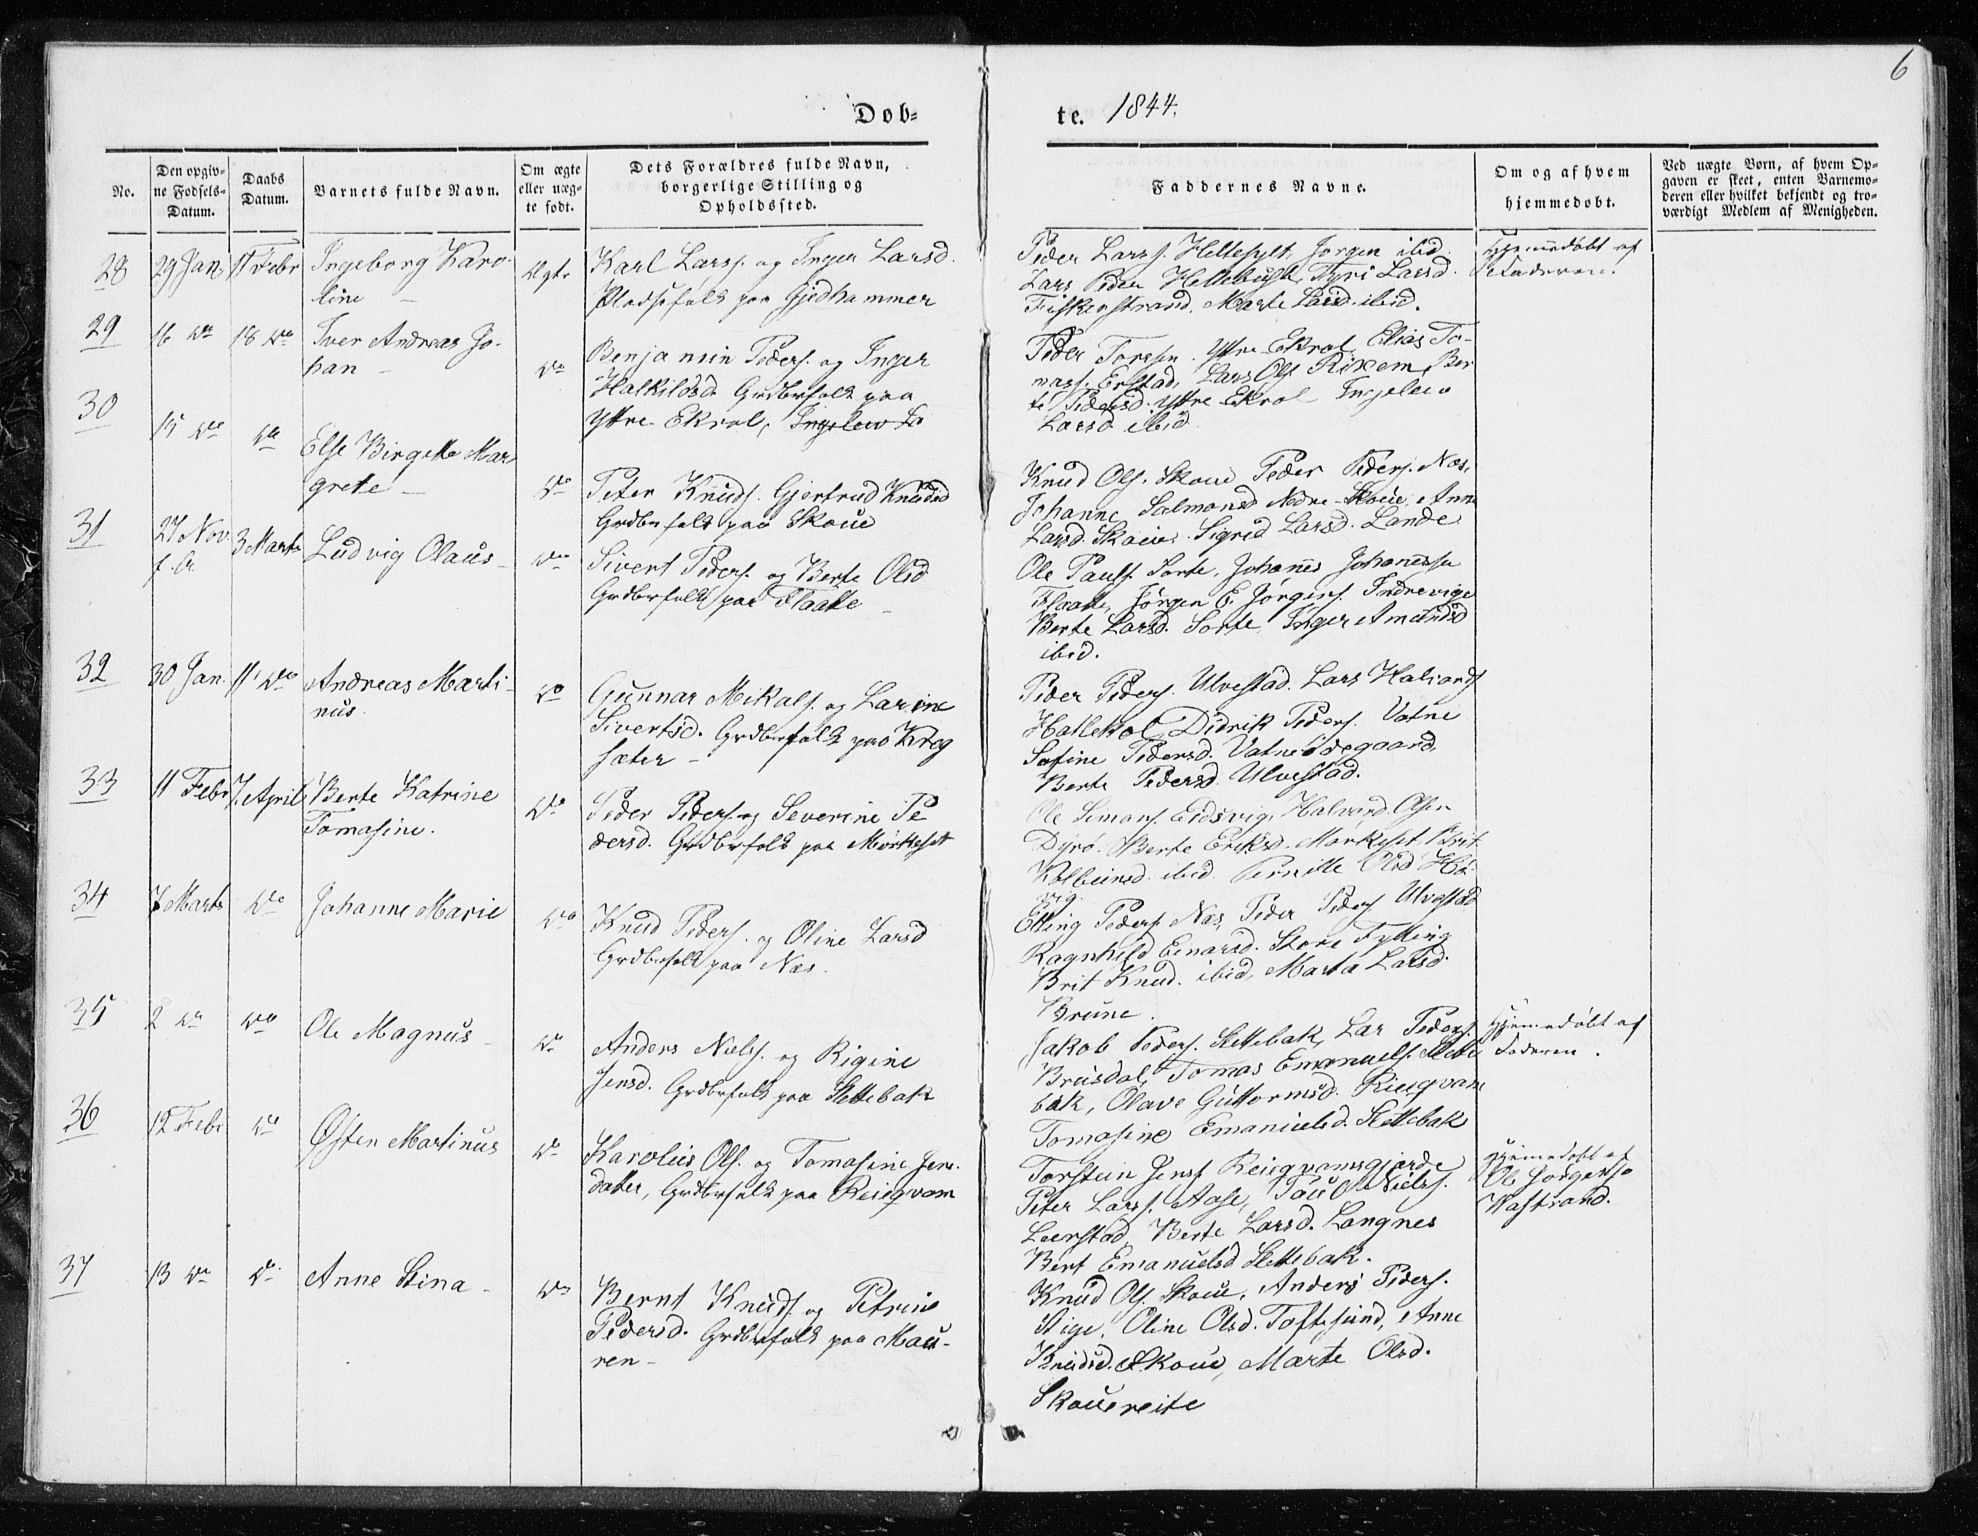 6
Døb-
te. 1844.
No.
Den opgiv-
ne Fødsels-
Datum.
Daabs
Datum.
Barnets fulde Navn.
Om ægte
eller uæg-
te født.
Dets Forældres fulde Navn,
borgerlige Stilling og
Opholdssted.
Faddernes Navne.
Om og af hvem
hjemmedøbt.
Ved uægte Børn, af hvem Op-
gaven er skeet, enten Barnemo-
deren eller hvilket bekjendt og tro-
værdigt Medlem af Menigheden.
28
29 Jan.
11 Febr
Ingeborg Karo-
line
Ægte
Karl Larss. og Inger Larsd.
Pladsefolk paa Gjedhammer
Peder Larss. Hellesylt, Jørgen ibid
Lars Peder Hellebust, Tyri Larsd.
Fiskerstrand, Marte Larsd. ibid.
Hjemmedøbt af
Faderen.
29
16 do
18 do
Iver Andreas Jo-
han
do
Benjamin Peders. og Inger
Halkildsd. Grdbrfolk paa
Yttre Ekrol, Ingelew La
Peder Torssen. Yttre Ekrol, Elias To-
mass. Erstad, Lars Ols. Rikem, Ber
te Pedersd. Yttre Ekrol Ingelew
Larsd ibid
30
15 do
do
Else Birgette Mar-
grete
do
Peter Knuds. Gjertrud Knudsd
Grdbrfolk paa Skoue
Knud Ols. Skoue Peder Peders. Næs,
Johanne Salmonsd Nedre-Skoue, Anne
Larsd. Skoue. Sigrid Larsd. Lande
31
27 Nov
f. A.
3 Marts
Ludvig Olaus
do
Sivert Peders. og Berte Olsd
Grdbrfolk paa Flaate
Ole Pauls. Sorte, Johanes Johanessen
Flaate, Jørgen E. Jørgens. Indrevige
Berte Larsd. Sorte, Inger Amundsd
ibid.
32
30 Jan.
11 do
Andreas Marti-
nus.
do
Gunnar Mikals. og Larine
Sivertsd. Grdbrfolk paa Krog
sæter
Peder Peders. Ulvestad. Lars Halvards
Hattekol, Didrik Peders. Vatne
Sofine Pedersd. Vatneødegaard,
Berte Pedersd. Ulvestad.
33
11 Febr
7. April
Berte Katrine
Tomasine.
do
Peder Peders. og Severine Pe
dersd. Grdbrfolk paa Mørkeset
Ole Simons. Eidsvig, Halvard Olsen
Dyrø. Berte Eriksd. Mørkeset, Brit
Kolbeinsd. ibid. Pernille Olsd Hø-
vig.
34
7 Marts
do
Johanne Marie
do
Knud Peders. og Oline Larsd
Grdbrfolk paa Næs.
Elling Peders. Næs, Peder Peders. Ulvestad
Ragnhild Einarsd. Store Fylling
Brit Knud. ibid, Marta Larsd.
Brune.
35
2 do
do
Ole Magnus
do
Anders Niels. og Rigine
Jensd. Grdbrfolk paa Slettebak
Jakob Peders. Slettebak, Lar Peders.
Brusdal, Tomas Emanuels. Slette
bak, Olave Guttormsd. Riegvam
Tomasine Emanuelsd. Slettebak
Hjemmedøbt af
Faderen.
36
12 Febr
do
Østen Martinus
do
Karolius Ols. og Tomasine Jens-
datter, Grdbrfolk paa Reiegvam
Torstein Jens. Reiegvamsgjærde
Peter Larss. Aase, Niels.
Leerstad, Berte Larsd. Langnes
Bert Emanuelsd Slettebak.
Hjemmedøbt af
Ole Jørgens.
Wastrand.
37
13 do
do
Anne Stina
do
Bernt Knuds. og Petrine
Pedersd. Grdbrfolk paa Mau-
ren
Knud Ols. Skoue, Anders Peders.
Stige. Oline Olsd. Toftesund, Anne
Knudsd. Skoue, Marte Olsd.
Skouereite